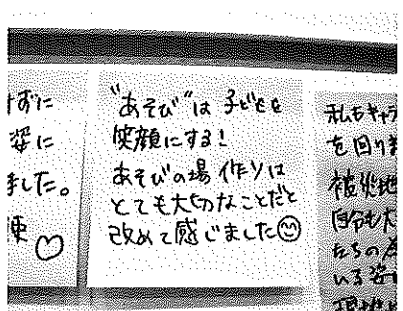 けずに
姿に
ました。
"あそび"は 子どもを
笑顔にする!
あそびの場作りは
とても大切なことだと
改めて感じました
私もキャラ
を回りま
被災地
自分も大
たちの為
いる姿